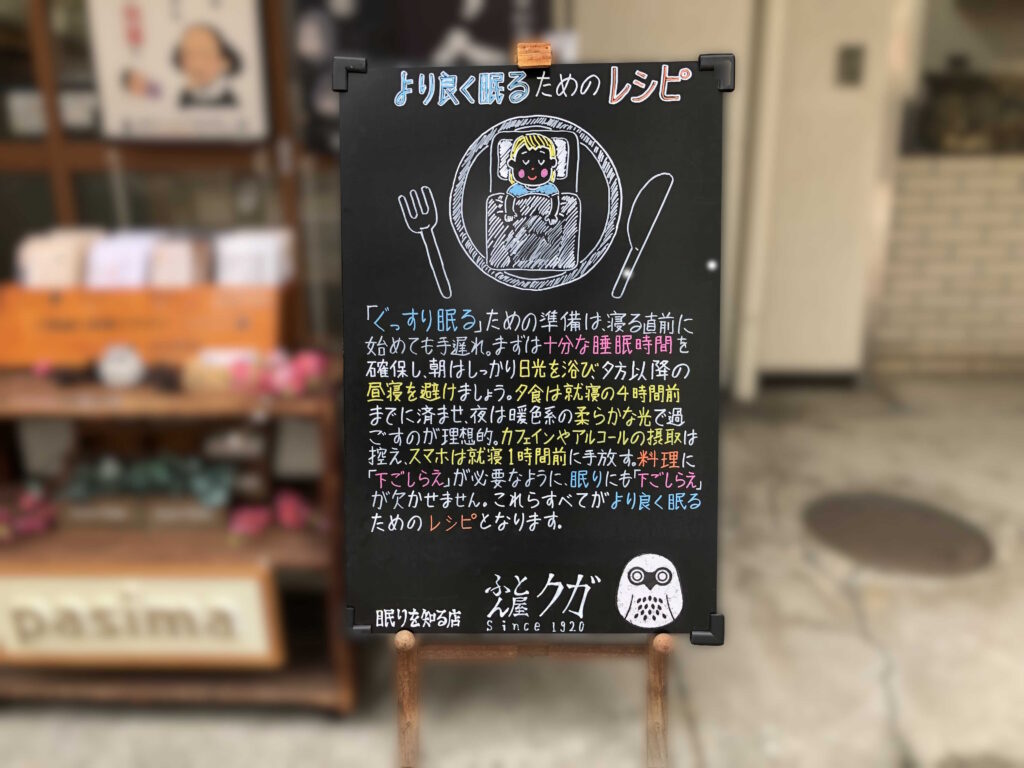 より良く眠るためのレシピ
「ぐっすり眠る」ための準備は、寝る直前に
始めても手遅れ。まずは十分な睡眠時間を
確保し、朝はしっかり日光を浴び夕方以降の
昼寝を避けましょう。夕食は就寝の4時間前
までに済ませ、夜は暖色系の柔らかな光で過
ごすのが理想的。カフェインやアルコールの摂取は
控え、スマホは就寝1時間前に手放す。料理に
「下ごしらえ」が必要なように、眠りにも「下ごしらえ」
が欠かせません。これらすべてがより良く眠る
ためのレシピとなります。
眠りを知る店
ふとん屋クガ
Since 1920
pasima